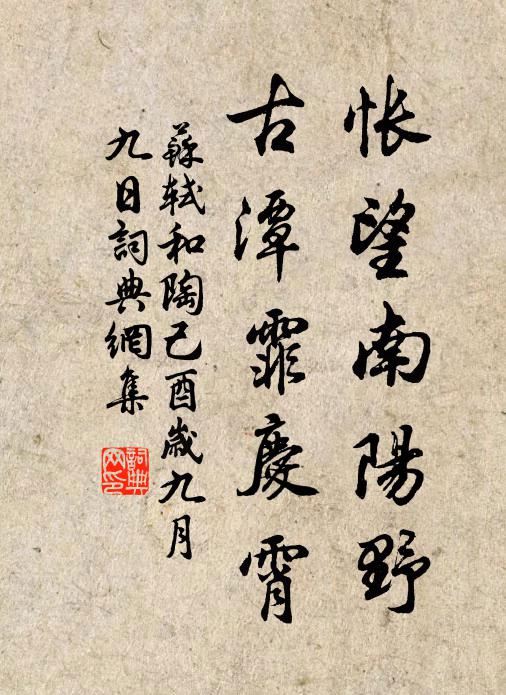 悵望南陽野
古潭霏慶霄
蘇軾和陶己酉歲九月
九日詞典網集
詞典
网印